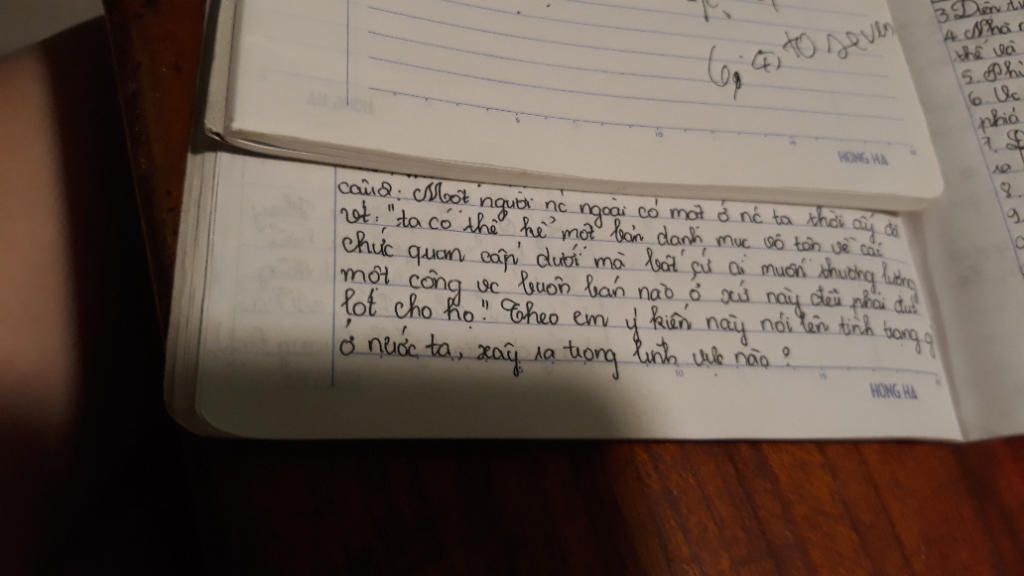 6, (E) to seven
HONG HA
câu8: Một người nc ngoài có mặt ở nc ta thời ấy đã
viết: "ta có thể kể một bản danh mục vô tận về các
chức quan cấp dưới mà bất cứ ai muốn thương lượng
một công vc buôn bán nào ở xứ này đều phải đút
lót cho họ." Theo em ý kiến này nói lên tình trạng g
ở nước ta, xảy ra trong lĩnh vực nào?
HONG HA
3. Diễn
4. Nhà
thế và
5. Phi
6. Vc
phía
7.
8.
9.